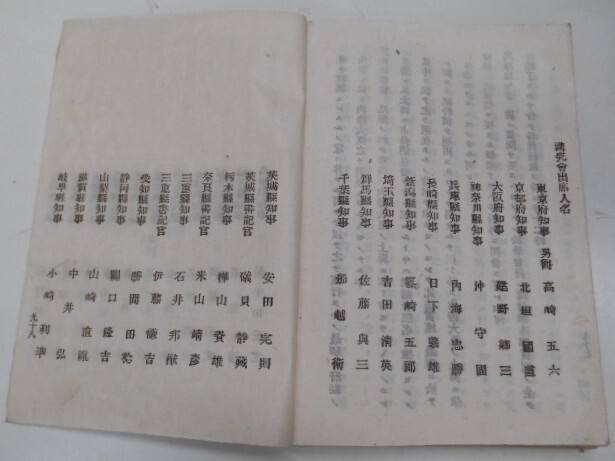 講究會出席人名
東京府知事 男爵 高崎五六
京都府知事 北垣國道
大阪府知事 建野郷三
神奈川縣知事 沖守固
兵庫縣知事 內海忠勝
長崎縣知事 日下義雄
新潟縣知事 篠崎五郎
埼玉縣知事 吉田清英
群馬縣知事 佐藤與三
千葉縣知事 船越衛
茨城縣知事 安田定則
茨城縣書記官 礒貝靜藏
栃木縣知事 樺山資雄
奈良縣書記官 米山靖彥
三重縣知事 石井邦猷
三重縣書記官 伊藤謙吉
愛知縣知事 勝間田稔
靜岡縣知事 關口隆吉
山梨縣知事 山崎直胤
滋賀縣知事 中井弘
岐阜縣知事 小崎利準
九十八